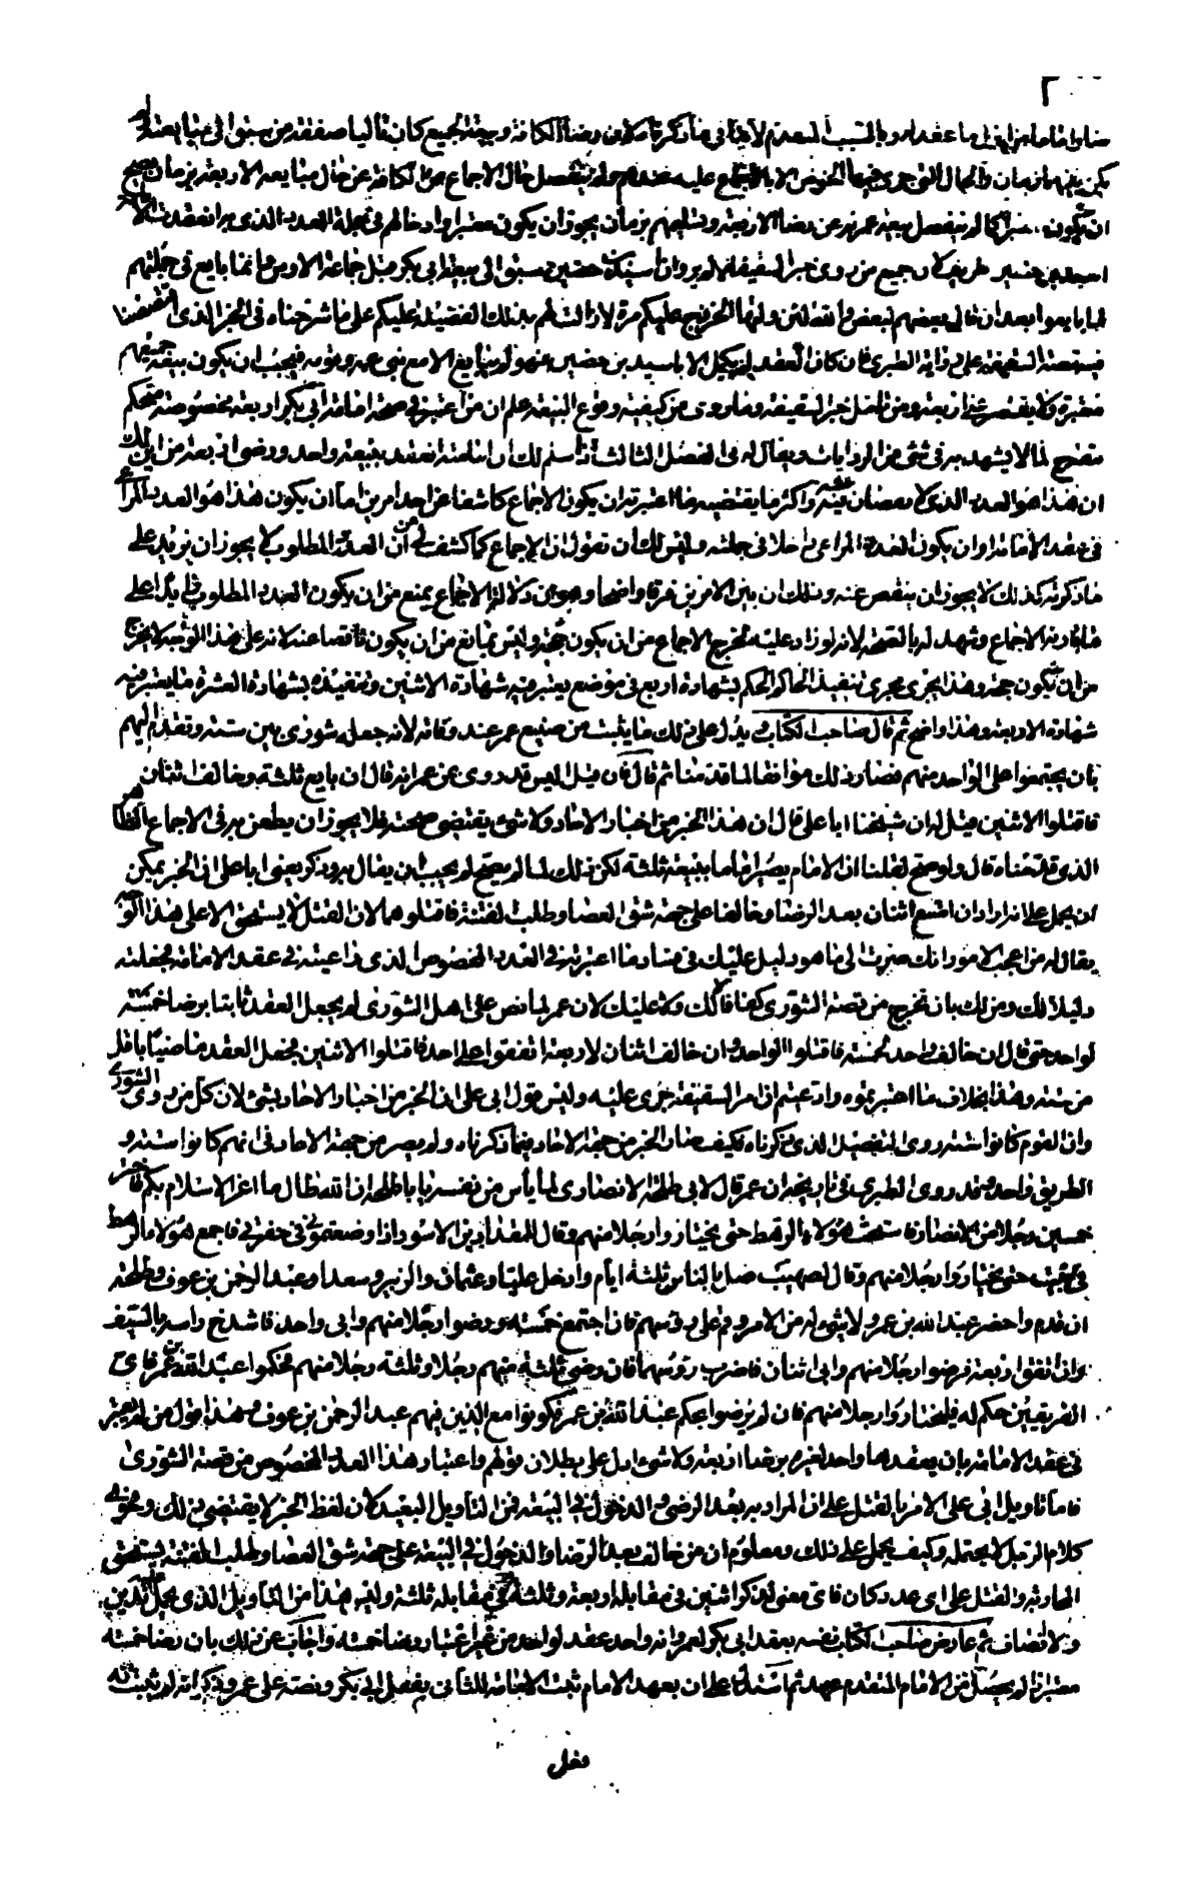 بكن بينهما زمان والحال التي جرى فيها الخوض الا بالاجماع عليه
ان يكون كما لم ينفصل بيعة عمر عن رضا الاربعة وتسليمهم بزمان يجوز ان يكون معتبرا وادخالهم في جملة العدد الذي به انعقدت الامامة
جميع من روى خبر السقيفة سبقوا الى بيعة ابي بكر قبل جماعة الاوس وانما بايع في جملتهم
لما بايعوا بعد ان قال بعضهم لبعض والله لئن وليتها الخزرج عليكم مرة لا زالت لهم بذلك الفضيلة عليكم على ما شرحناه في الخبر الذي اقتصصنا
فيه قصة السقيفة على رواية الطبري فان كان العقد لم يكمل الا باسيد بن حضير فهو لم يبايع الا مع بني عمه وقومه فيجب ان يكون بيعة جميعهم
معتبرة ولا يقتصر على اربعة ومن تأمل خبر السقيفة وما روى من كيفيته وقوع البيعة علم ان من اعتبر في صحة امامة ابي بكر اربعة مخصوصة متحكم
مقترح لما لا يشهد به في شيء من الروايات ويقال له في الفصل الثالث اذا سلم لك ان امامته انعقدت ببيعة واحد ورضى اربعة من اين لك
ان هذا هو العدد الذي لا نقصان عنه واكثر ما يقتضيه ما اعتبرته ان يكون الاجماع كاشفا عن احد امرين اما ان يكون هذا هو العدد المراعى
في عقد الامامة او ان يكون العدد المراعى داخلا في جملته وليس لك ان تقول ان الاجماع كما كشف لي من ان العدد المطلوب لا يجوز ان يزيد على
ما ذكرته كذلك لا يجوز ان ينقص عنه وذلك ان بين الامرين فرقا واضحا وهو ان دلالة الاجماع يمنع من ان يكون العدد المطلوب زايدا على
ما قارنه الاجماع وشهد له بالصحة لانه لو زاد عليه لخرج الاجماع من ان يكون حجة وليس بمانع من ان يكون ناقصا عنه لانه على هذا الوجه لا يخرج
من ان يكون حجة وهذا يجري مجرى تنفيذ الحاكم الحكم بشهادة اربع في موضع يعتبر فيه شهادة الاثنين وتنفيذه بشهادة العشرة ما يعتبر فيه
شهادة الاربعة وهذا واضح ثم قال صاحب الكتاب ويدل على ذلك ما يثبت من صنيع عمر عند وفاته لانه جعله شورى بين ستة وتقدم اليهم
بان يجتمعوا على الواحد منهم فصار ذلك موافقا لما قدمناه ثم قال فان قيل اليس قد روى عن عمر انه قال ان بايع ثلثة وخالف اثنان
فاقتلوا الاثنين قيل له ان شيخنا ابا علي قال ان هذا الخبر من اخبار الاحاد ولا شيء يقتضي صحته فلا يجوز ان يطعن به في الاجماع الظاهر
الذي قدمناه قال ولو صح لقلنا ان الامام يصير اماما ببيعة ثلثة لكن ذلك لما لم يصح لم يجب ان يقال به وذكر يعني ابا علي ان الخبر يمكن
ان يحمل على انه اراد ان امتنع اثنان بعد الرضا وخالفا على جهة شق العصا وطلب الفتنة فاقتلوهما لان القتل لا يستحق الا على هذا الوجه
يقال له من اعجب الامور انك صرت الى ما هو دليل عليك في فساد ما اعتبرته في العدد المخصوص الذي ادعيته في عقد الامامة فجعلته
دليلا لك ومن لك بان تخرج من قصة الشورى كفافا لا لك ولا عليك لان عمر لما نص على اهل الشورى لم يجعل العقد ثابتا برضا خمسة
لواحد حتى قال ان خالف واحد لخمسة فاقتلوا الواحد وان خالف اثنان لاربعة اتفقوا على احد فاقتلوا الاثنين فجعل العقد ماضيا باقل
من ستة وهذا بخلاف ما اعتبرتموه وادعيتم ان امر السقيفة جرى عليه وليس قول ابي علي ان الخبر من اخبار الاحاد بشيء لان كل من روى الشورى
وان القوم كانوا ستة روى التفصيل الذي ذكرناه فكيف صار الخبر من جهة الاحاد فيما ذكرناه ولم يصر من جهة الاحاد في انهم كانوا ستة و
الطريق واحد وقد روى الطبري في تاريخه ان عمر قال لابي طلحة الانصاري لما يأس من نفسه يا ابا طلحة ان الله طال ما اعز الاسلام بكم فاختر
خمسين رجلا من الانصار فاستحث هؤلاء الرهط حتى يختاروا رجلا منهم وقال للمقداد بن الاسود اذا وضعتموني في حفرتي فاجمع هؤلاء الرهط
في بيت حتى يختاروا رجلا منهم وقال لصهيب صل بالناس ثلثة ايام وادخل عليا وعثمان والزبير وسعدا وعبد الرحمن بن عوف وطلحة
ان قدم واحضر عبد الله بن عمر ولا شيء له من الامر وقم على رؤسهم فاذا اجتمع خمسة ورضوا رجلا منهم وابى واحد فاشدخ راسه بالسيف
وان اتفق اربعة فرضوا رجلا منهم وابى اثنان فاضرب رؤسهما فان رضى ثلثة منهم رجلا وثلثة رجلا منهم فحكموا عبد الله بن عمر فاي
الفريقين حكم له فليختاروا رجلا منهم فان لم يرضوا بحكم عبد الله بن عمر فكونوا مع الذين فيهم عبد الرحمن بن عوف وهذا قول من لم يعتبر
في عقد الامامة بان يعقدها واحد لغيره برضا اربعة ولا شيء ادل على بطلان قولهم واعتبار هذا العدد المخصوص من قصة الشورى
فاما تاويل ابي علي الامر بالقتل على ان المراد به بعد الرضى والدخول في البيعة فمن التأويل البعيد لان لفظ الخبر لا يقتضي ذلك وفحوى
كلام الرجل لا يحتمله وكيف يحمل على ذلك ومعلوم ان من خالف بعد الرضا والدخول في البيعة على جهة شق العصا وطلب الفتنة يستحق
المحاربة والقتل على اي عدد كان فاي معنى لذكر اثنين في مقابلة اربعة وثلثة في مقابلة ثلثة وليس هذا من التأويل الذي يحل لذي دين
ولا انصاف ثم عارض صاحب الكتاب نفسه بعقد ابي بكر لعمر وانه واحد عقد لواحد من غير اعتبار رضا خمسة واجاب عن ذلك بان رضا خمسة
معتبر اذا لم يحصل من الامام المتقدم عهد ثم استدل على ان بعهد الامام تثبت الامامة للثاني بفعل ابي بكر ونصه على عمر وذكر انه لم تثبت له